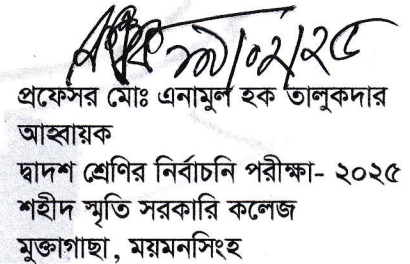 প্রফেসর মোঃ এনামুল হক তালুকদার
আহবায়ক
দ্বাদশ শ্রেণির নির্বাচনি পরীক্ষা- ২০২৫
শহীদ স্মৃতি সরকারি কলেজ
মুক্তাগাছা, ময়মনসিংহ